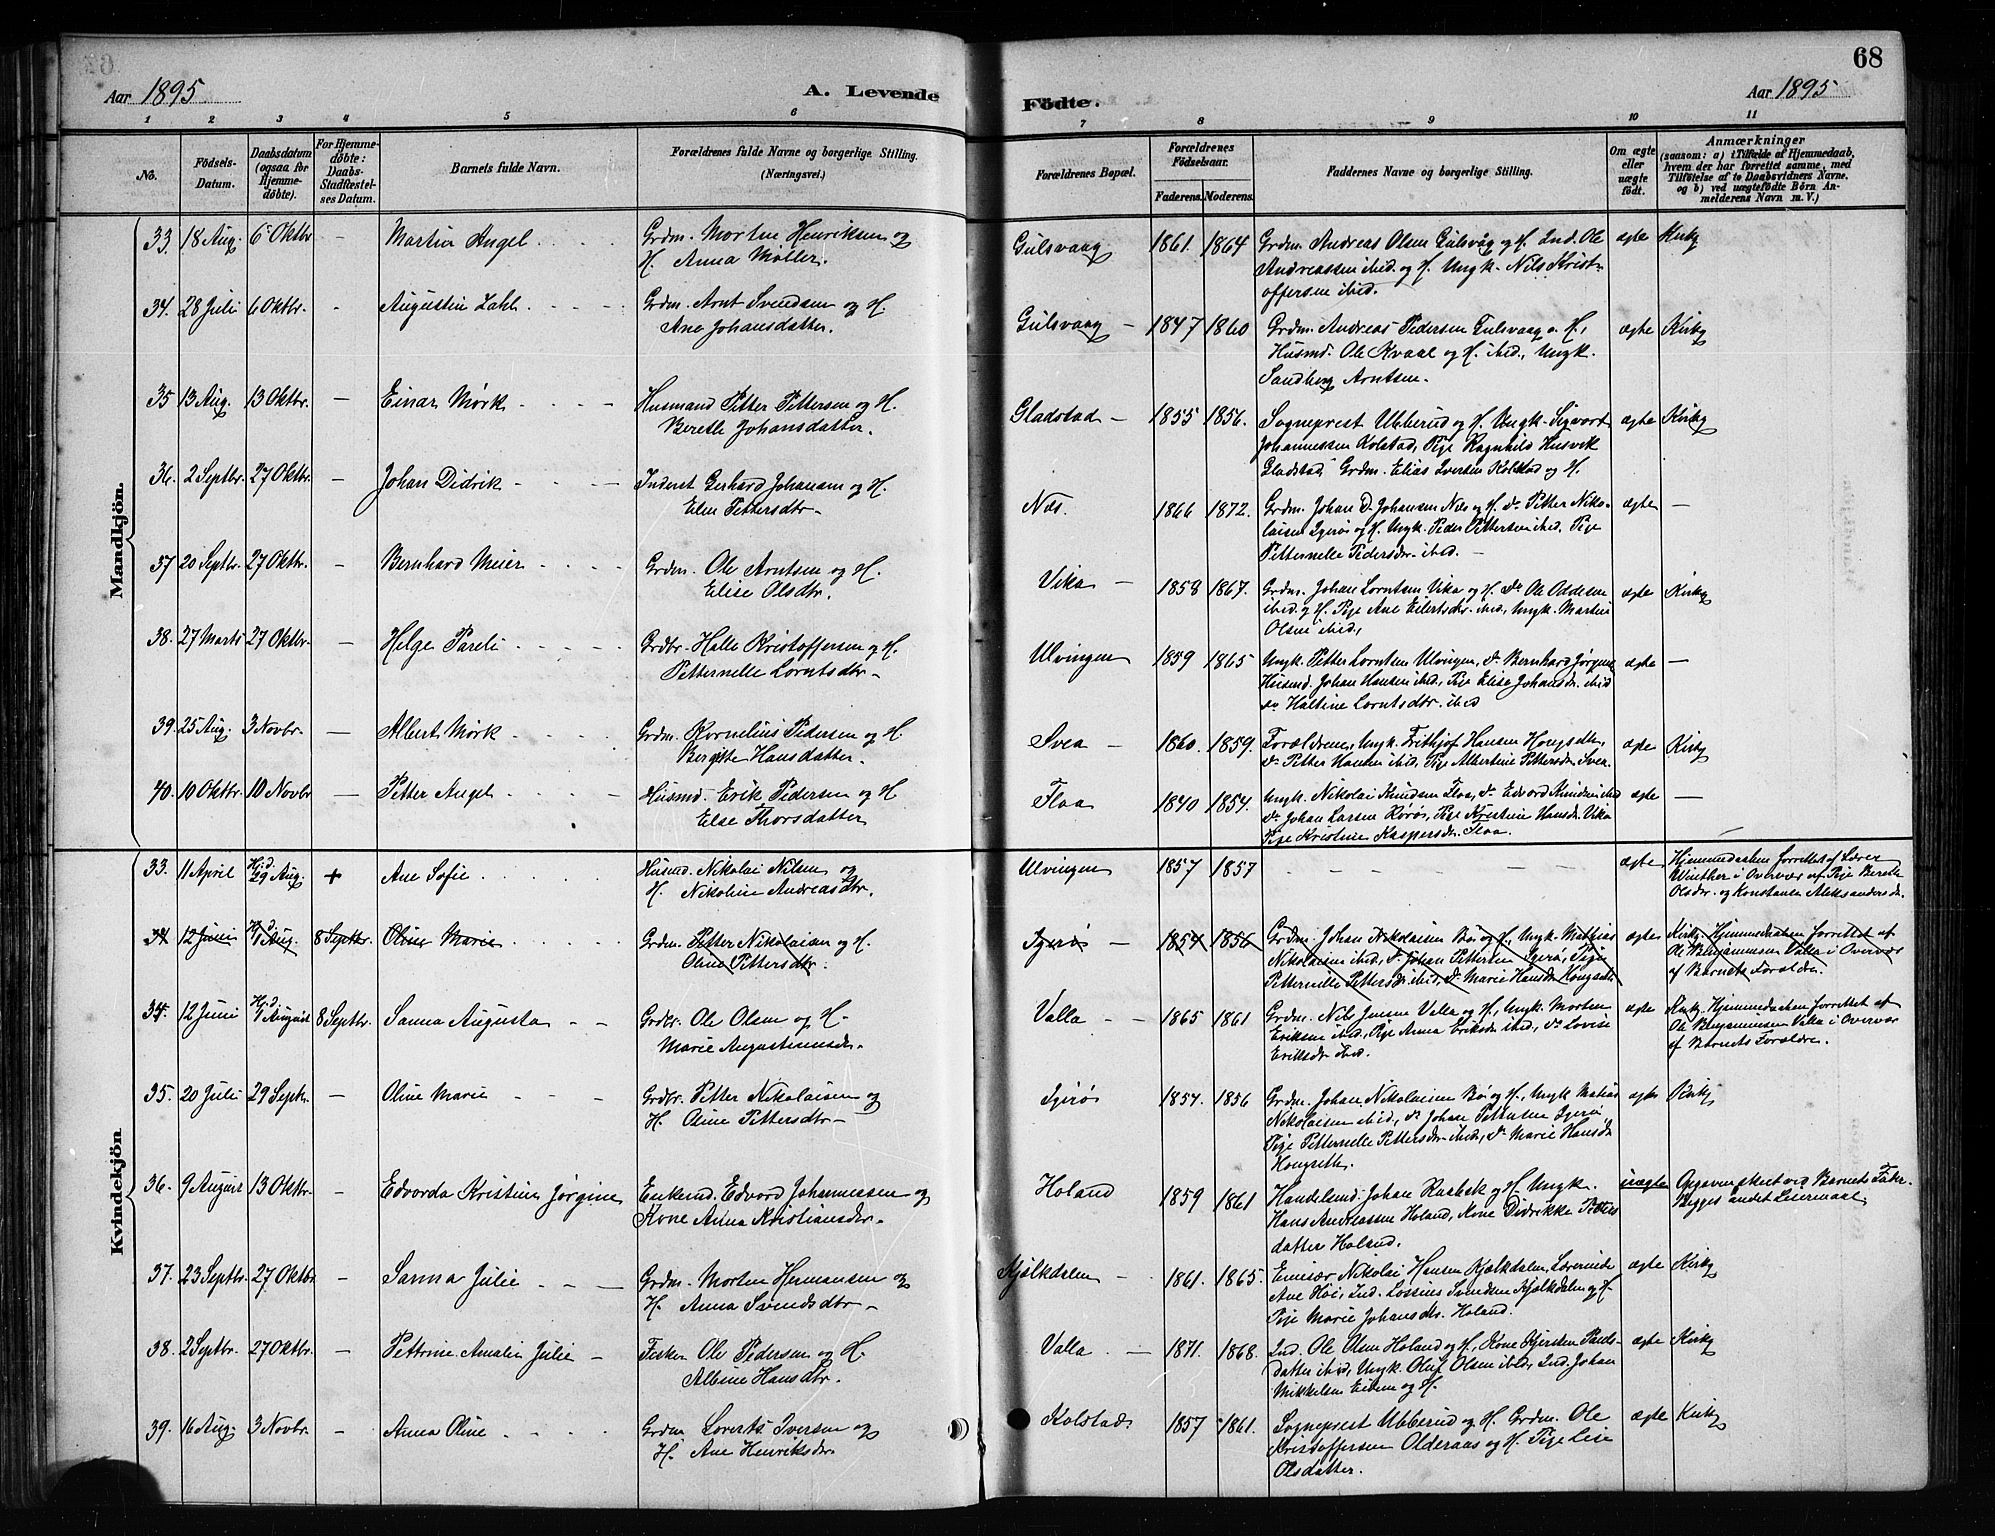 68
Aar 1895
A. Levende
Födte.
Aar 1895
1 2 3 4 5 6 7 8 9 10 11
No.
Födsels-Datum.
Daabsdatum (ogsaa for Hjemme-döbte).
For Hjemme-döbte: Daabs-Stadfæstel-ses Datum.
Barnets fulde Navn.
Forældrenes fulde Navne og borgerlige Stilling.
(Næringsvei.)
Forældrenes Bopæl.
Forældrenes Födselsaar.
Faderens. Moderens.
Faddernes Navne og borgerlige Stilling.
Om ægte eller uægte födt.
Anmærkninger
(saasom: a) i Tilfælde af Hjemmedaab,
hvem der har forrettet samme, med
Tilföielse af to Daabsvidners Navne.
og b) ved uægtefödte Börn An-
melderens Navn m. V.)
Mandkjön.
33. 18 Aug. 6 Oktbr - Martin Angel Grdm. Morten Henriksen og
H. Anna Møller.
Gulsvaag 1861. 1864 Grdm. Andreas Olsen Gulsvåg og H. Ind. Ole
Andreassen ibid. og H. Ungk. Nils Krist-
offersen ibid.
ægte Kirke
34. 28 Juli 6 Oktbr. - Augustin Dahl Grdm. Arnt Svendsen og H.
Ane Johansdatter.
Gulsvaag - 1847 1860 Grdm. Andreas Pedersen Gulsvaag o. H.,
Husmd. Ole Kvaal og H. ibid., Ungk.
Sandberg Arntsen.
ægte Kirke
35 13 Aug. 13 Oktbr. - Einar Mørk Husmand Petter Pettersen og H.
Beretle Johansdatter.
Gladstad - 1855 1856. Sogneprest Ubberud og H. Ungk. Sigvart
Johannessen Kolstad, Pige Ragnhild Husvik
Gladstad, Grdm. Elias Iversen Kolstad og H.
ægte Kirke
36. 2 Septbr. 27 Oktbr. - Johan Didrik Inderst Gerhard Johansen og H.
Elen Pettersdtr.
Næs. 1866 1872. Grdm. Johan D. Johansen Næs og H. do Petter Niko-
laisen Igerøs og H. Ungk. Peder Pettersen ibid. Pige
Petternelle Pedersdr. ibid.
ægte -
37 20 Septbr. 27 Oktbr. - Bernhard Meier Grdm. Ole Arntsen og H.
Elise Olsdtr.
Vika - 1858 1867. Grdm. Johan Lorntsen Vika og H. do Ole Oddesen
ibid. og H. Pige Ane Eilertsdr. ibid., Ungk. Martin
Olsen ibid.,
ægte Kirke
38. 27 Marts 27 Oktbr. - Helge Pareli Grdbr. Halle Kristoffersen og H.
Petternelle Lorntsdtr.
Ulvingen 1859 1865 Ungk. Petter Lorntsen Ulvingen, do Bernhard Jørgens
Husmd. Johan Hansen ibid., Pige Elise Johansdr. ibid
do Haltine Lorntsdtr. ibid
ægte -
39. 25 Aug. 3 Novbr. - Albert Mørk Grdm. Kornelius Pedersen og H.
Bergitte Hansdatter.
Svea - 1860. 1859. Forældrene, Ungk. Frithjof Hansen Hongseth,
do Petter Hansen ibid, Pige Albertine Pettersdr. Svea.
ægte Kirke
40. 10 Oktbr. 10 Novbr - Petter Angel Husmd. Erik Pedersen og H
Else Thorsdatter
Floa 1840 1854. Ungk. Nikolai Knudsen Floa, do Edvard Knudsen ibid
do Johan Larsen Rørøs, Pige Kristine Hansdr. Vika
Pige Kristine Kaspersdr. Floa.
ægte -
Kvindekjön
33. 11 April Hjd. 29 Aug. + Ane Sofie Husmd. Nikolai Nilsen og
H. Nikoline Andreasdtr.
Ulvingen 1857 1857 ægte Hjemmedaaben forrettet af Lærer
Winther i Overvær af Pige Beretle
Olsdtr. og Konstanse Aleksandersdr.
34 12 Juni Hjd. 1 Aug. 8 Septbr. Oline Marie Grdm. Petter Nikolaisen og H.
Oline Pettersdtr.
Igerøs - 1854 1856 Grdm. Johan Nikolaisen Bø og H., Ungk. Mathias
Nikolaisen ibid., do Johan Pettersen Igerø, Pige
Petternelle Pettersdr. ibid., do Marie Hansdr. Hongseth
ægte Kirke. Hjemmedaaben forrettet af
Ole Benjaminsen Valla i Overvær
af Barnets Forældre.
34. 12 Juni Hjd. 1 August 8 Septbr. Sanna Augusta Grdbr. Ole Olsen og H.
Marie Augustinusdr.
Valla 1865 1861 Grdm. Nils Jensen Valla og H., Ungk. Morten
Eriksen ibid, Pige Anna Eriksdr. ibid, do Lovise
Eriksdr. ibid.
ægte Kirke. Hjemmedaaben forrettet af
Ole Benjaminsen Valla i Overvær
af Barnets Forældre.
35. 20 Juli 29 Septr. - Oline Marie Grdbr. Petter Nikolaisen og
H. Oline Pettersdtr.
Igerøs 1854. 1856 Grdm. Johan Nikolaisen Bø og H., Ungk Matias
Nikolaisen ibid., do Johan Pettersen Igerø,
Pige Petternelle Pettersdr. ibid., do Marie Hansdr.
Hongseth.
ægte Kirke
36. 9 August 13 Oktbr. - Edvarda Kristine Jørgine Enkemd. Edvard Johannessen og
Kone Anna Kristiansdr.
Holand 1859 1861 Handelsmd. Johan Raabek og H. Ungk.
Hans Andreassen Holand, Kone Didrikke Peters
datter Holand.
uægte Opgaven skeet ved Barnets Fader.
Begges andet Leiermaal
37. 23 Septbr. 27 Oktbr - Sanna Julie Grdm. Morten Hermansen og
H. Anna Svendsdtr.
Kjølkdalen 1861. 1865. Emisær Nikolai Hansen Kjølkdalen, Lærerinde
Ane Høi, Ind. Lossius Svendsen Kjølkdalen og H.
Pige Marie Johansdtr. Holand.
ægte Kirke
38. 2 Septbr. 27 Oktbr. - Pettrine Amalie Julie Fisker Ole Pedersen og H.
Albine Hansdtr.
Valla. 1871. 1868. Ind. Ole Olsen Holand og H., Kone Kjersten Peders-
datter ibid, Ungk. Oluf Olsen ibid., Ind. Johan
Mikkelsen Eidem og H.
ægte Kirke
39. 16 Aug. 3 Novbr. - Anna Oline Grdm. Lorents Iversen og
H. Ane Henriksdr.
Kolstad 1857 1861. Sogneprest Ubberud og H. Grdm. Ole
Kristoffersen Olderaas og H. Pige Lise
Olsdatter.
ægte Kirke